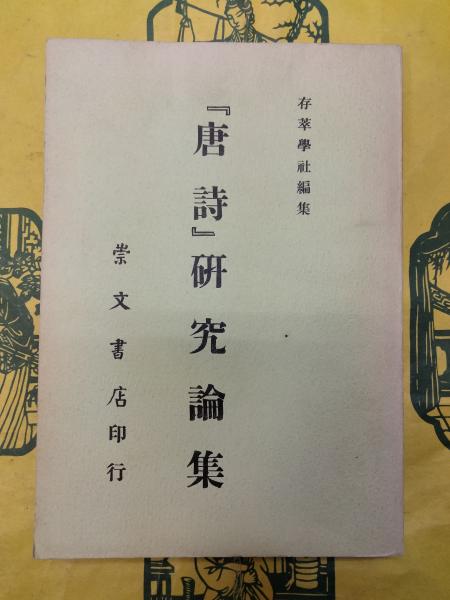 存萃學社編集
『唐詩』硏究論集
崇文書店印行